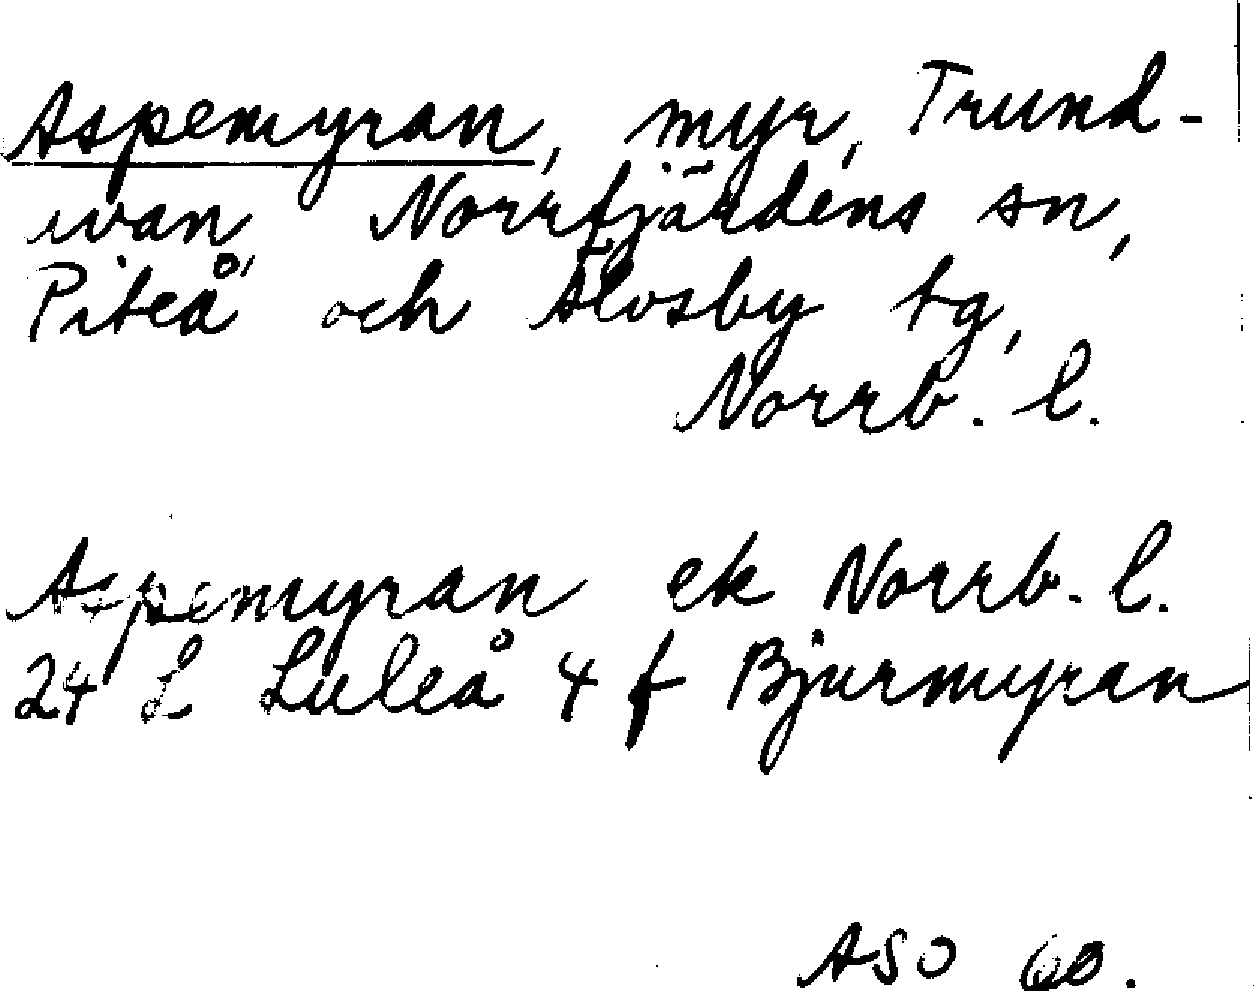 Aspemyran, myr, Trund-
uvan, Norrfjärdens sn,
Piteå, och Älvsby tg,
Norrb. l.
Aspemyran ek Norrb. l.
24 L Luleå 4 f Bjurmyran
ASO 60.